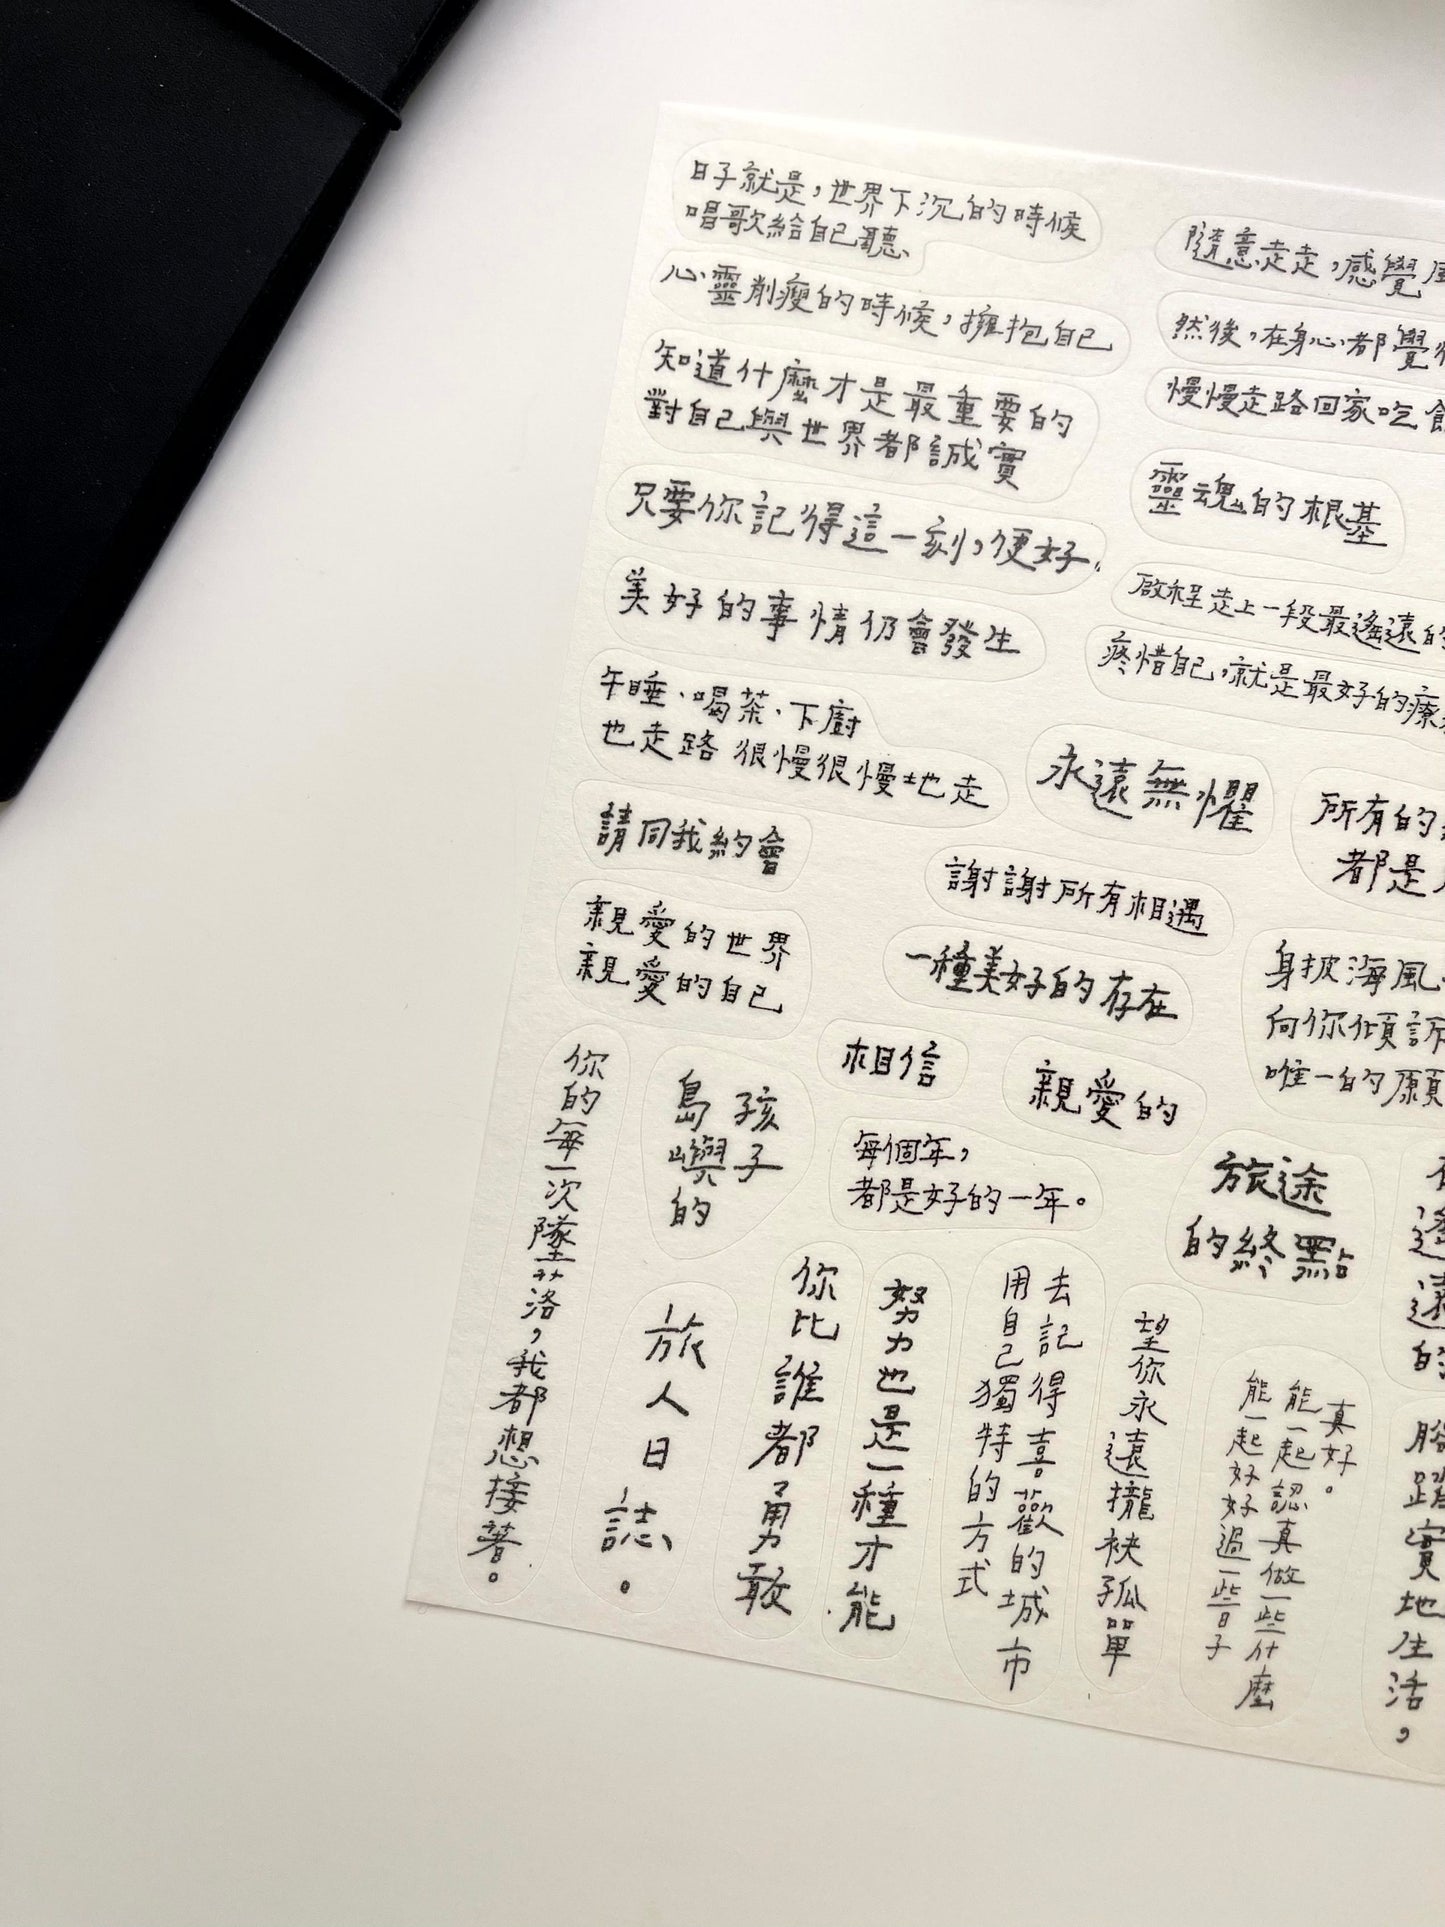 日子就是，世界下沉的時候
唱歌給自己聽、
心靈削瘦的時候，擁抱自己
知道什麼才是最重要的
對自己與世界都誠實
只要你記得這一刻，便好。
美好的事情仍會發生
午睡、喝茶、下廚
也走路 很慢很慢地走
請同我約會
親愛的世界
親愛的自己
隨意走走，感覺
然後，在身心都覺
慢慢走路回家吃
靈魂的根基
啟程走上一段最遙遠的
疼惜自己，就是最好的療
永遠無懼
所有的
都是
謝謝所有相遇
一種美好的存在
身披海風
向你傾訴
唯一的願
相信
親愛的
每個年，
都是好的一年。
旅途
的終點
你的每一次墜落，我都想接著。
孩子
島嶼的
旅人日誌、。
你比誰都勇敢
努力也是一種才能
去記得喜歡的城市
用自己獨特的方式
望你永遠攏袂孤單
真好。
能一起認真做一些什麼
能一起好好過一些日子
遙遠的
腳踏實地生活，